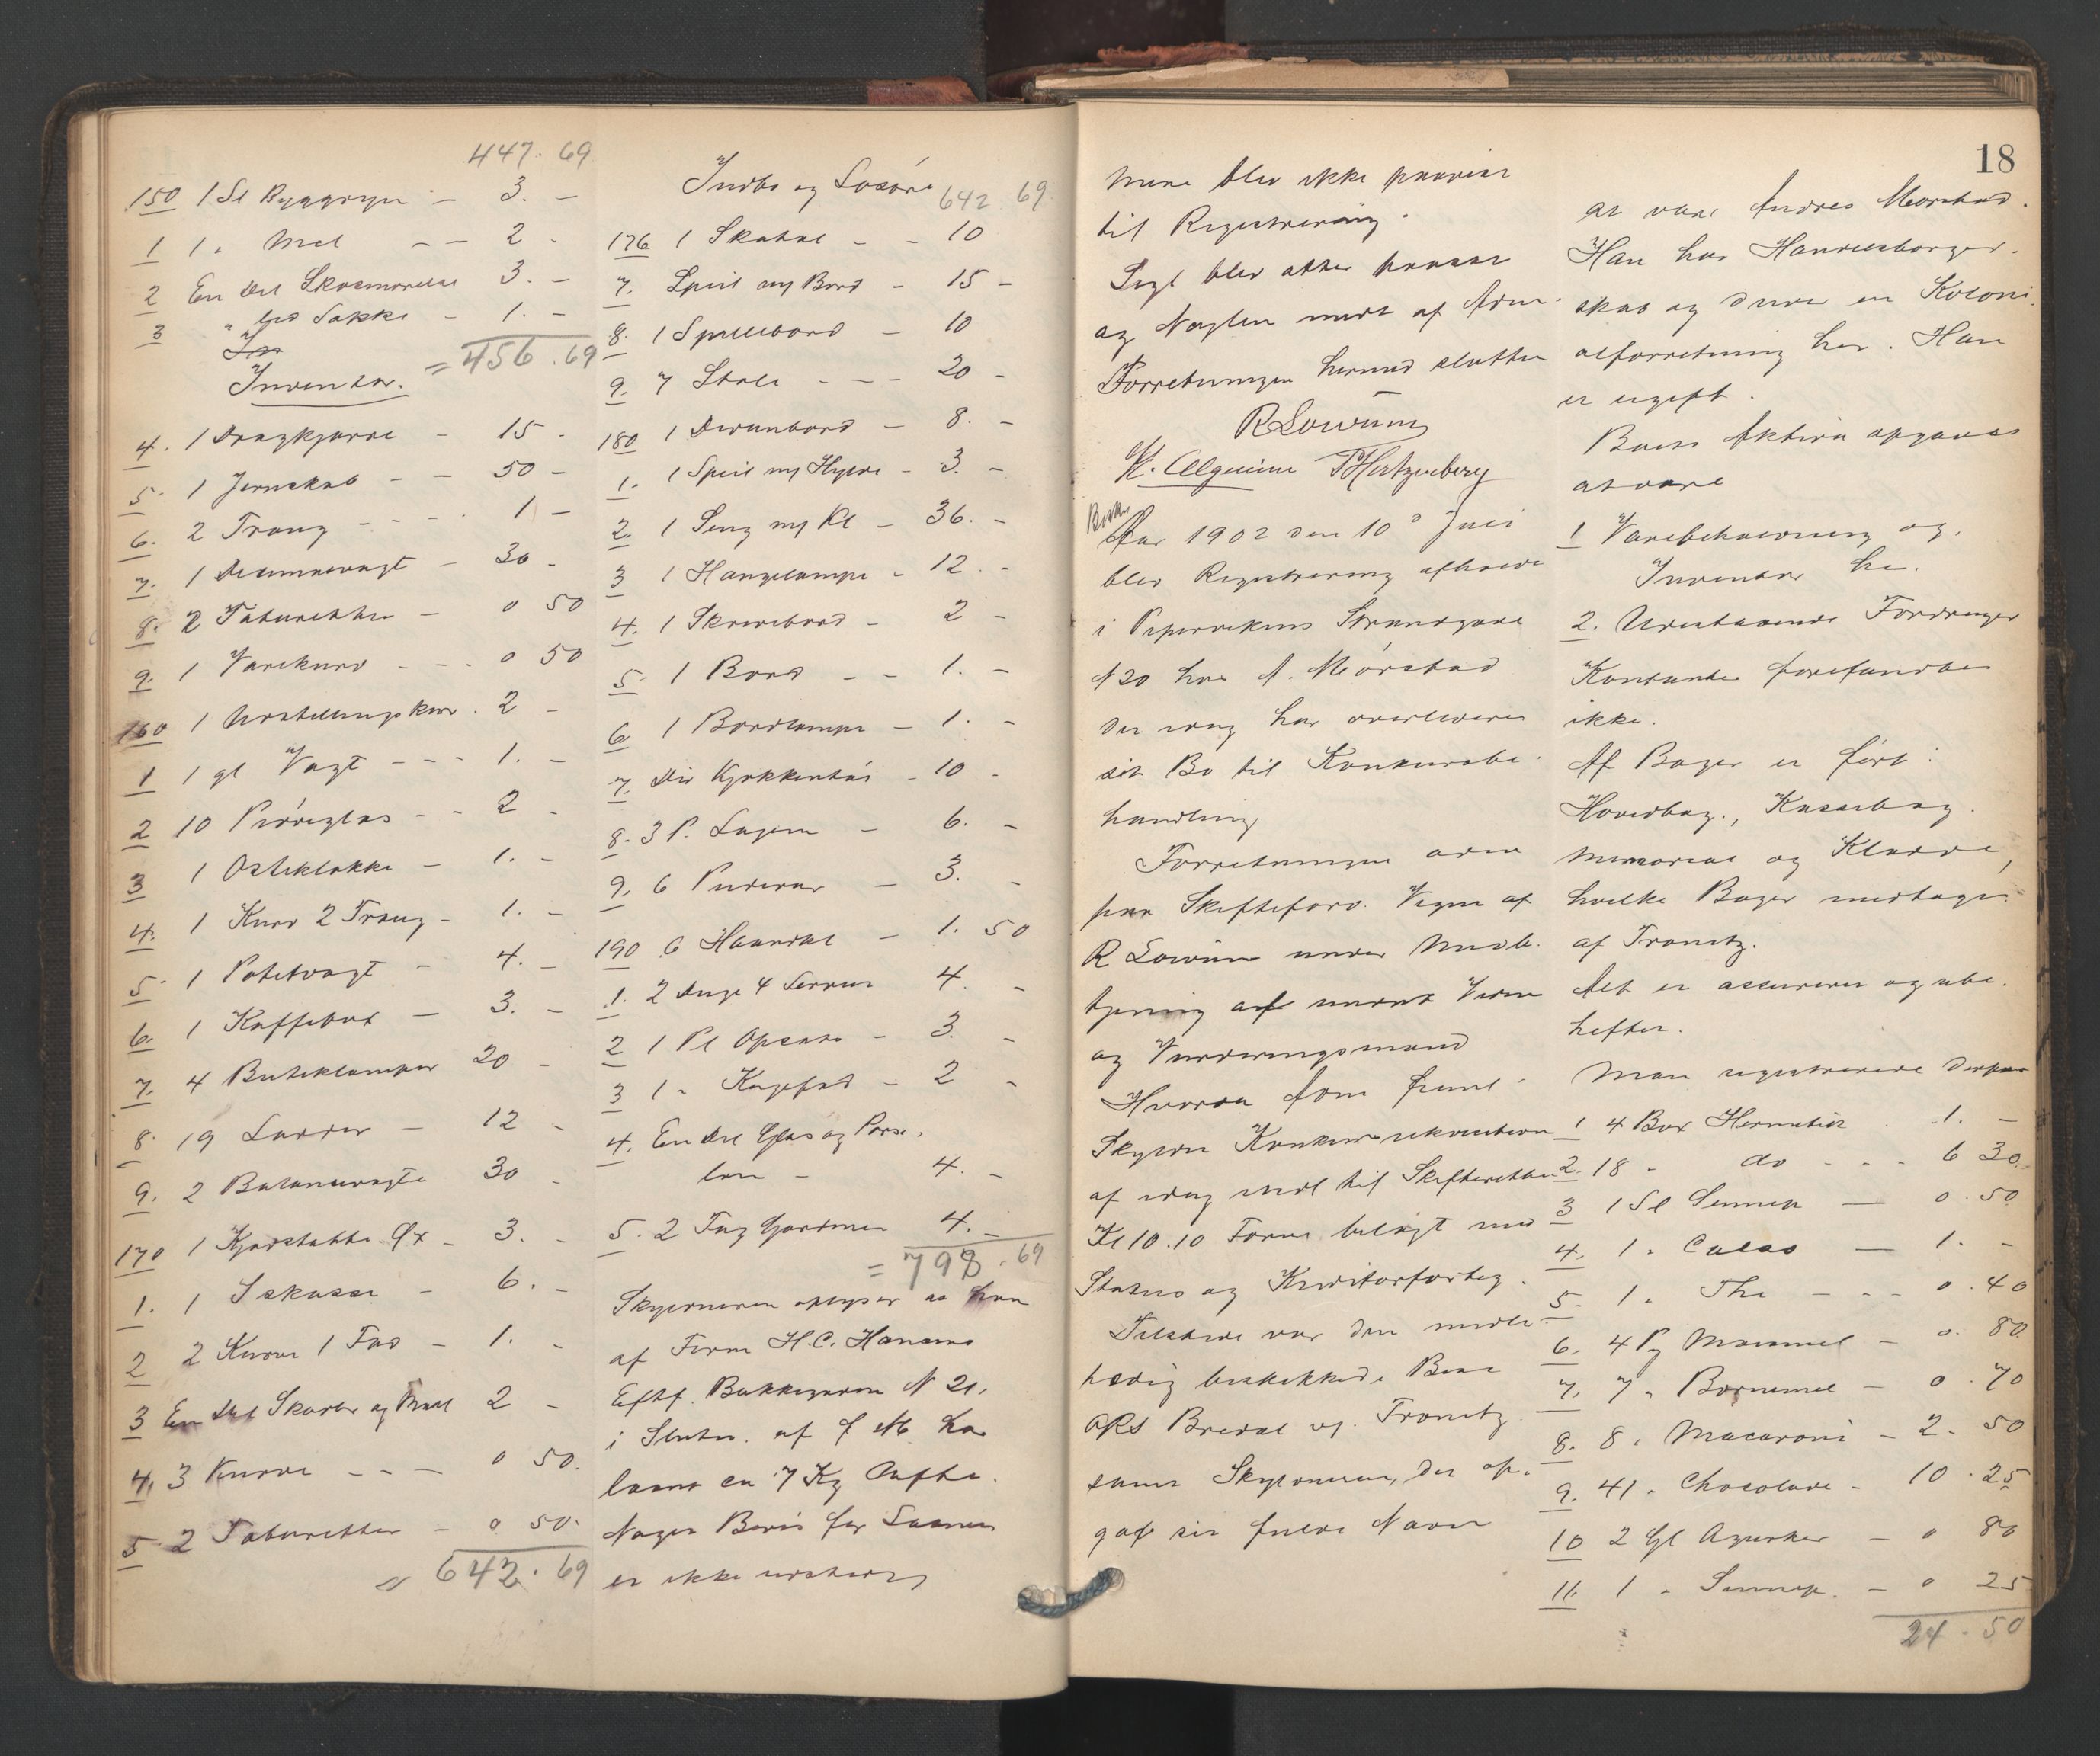 447. 69
150 1 Sk Byggryn - 3. -
1 1 " Mel - - 2 -
2 En Del Skosmørelse 3. -
3 " " Sække - 1. -
= 456.69
Inventar.
4. 1 Dragkjærre - 15 -
5. 1 Jernskab - - 50 -
6. 2 Trang - - - 1 -
7. 1 Decimalvægt - 30 -
8. 2 Taburetter - 0 50
9. 1 Varekurv - - - 0 50
160 1 Udstillingskurv. 2 -
1 1 gl Vægt - - - 1. -
2 10 Prøveglas - - 2 -
3 1 Osteklokke - 1. -
4. 1 Kurv 2 Trang - 1. -
5. 1 Potetvægt - 4. -
6. 1 Kaffebøt - 3. -
7. 4 Butiklamper 20 -
8. 19 Ladder - 12 -
9. 2 Balancevægte 30 -
170 1 Kjødstabbe Øx - 3. -
1. 1 Iskasse - 6. -
2 2 Kurve 1 Fad - 1. -
3 En Del Skuffer og Maal 2 -
4. 3 Kurve - - - 0 50.
5 2 Taburetter - 0 50.
642.69
Indbo og Løsøre
642.69.
176 1 Skatol - - 10
7. Speil m/ Bord - 15 -
8. 1 Spillebord - 10
9. 7 Stole - - - 20 -
180 1 Divanbord - 8. -
1. 1 Speil m/ Hylde - 3. -
2. 1 Seng m/ Kl - 36. -
3 1 Hængelampe - 12. -
4. 1 Skrivebord - 2 -
5. 1 Bord - - 1. -
6 1 Bordlampe - 1. -
7. Div Kjøkkentøi - 10 -
8. 3 P. Lagen - 6. -
9. 6 Pudevar - 3. -
190 6 Haandkl - 1. 50
1. 2 Duge 4 Servier 4. -
2 1 Pl Opsats - 3. -
3 1 " Kagefad - 2 -
4. En Del Glas og Porse-
len - 4. -
5. 2 Fag Gardiner 4. -
= 798.69
Skyldneren oplyser at han
af Firma H.C. Hansens
Eftf. Bakkegaden N 21,
i Slutn. af f M. har
laant ca 7 Kg Caffe.
Nogen Bevis for Laanet
er ikke udstedt
mere blev ikke paavist
til Registrering.
Segl blev atter paasat
og Nøglen medt af Adm.
Forretningen hermed sluttet
R Lowum
Th Hertzenberg
Aar 1902 den 10d Juli
blev Registrering afholdt
i Pipervikens Strandgade
N 20 hos A. Mørstad
der idag har overleveret
sit Bo til Konkursbe-
handling
Forretningen adm
paa Skifteforv. Vegne af
R Lowum under Medb.
tjening af Vidne
og Vurderingsmænd
Hvorda freml
Skyldn Konkursrekvisition
af idag indl til Skifteretten
Kl 10.10 Form belagt med
Status og Kreditorforteg.
Tilstede var den midler-
tidig beskikkede Best
ORS Bredal v/. Tronitz
samt Skyldneren, der op-
gaf sit fulde Navn
18
at være Andres Mørstad.
Han har Handelsborger-
skab og driver en Koloni-
alforretning her. Han
er ugift.
Boets Aktiva opgaves
at være
1 Varebeholdning og
Inventar her.
2. Udestaaende Fordringer
Kontanter forefandtes
ikke.
Af Bøger er ført:
Hovedbog., Kassebog.
Memorial og Kladde,
hvilke Bøger medtages
af Tronitz.
Alt er assureret og ube-
heftet.
Man registrerede derpaa
1 4 Box Hermetik . 1. -
2. 18 " do - - - 6 30.
3 1 Sl Sennep - 0. 50
4. 1 " Cacao - 1. -
5. 1 " The - - - 0.40
6. 4 Pg Maismel - 0. 80.
7. 7 " Bornemel - 0. 70
8. 8 " Macaroni - 2. 50
9. 41 " Chocolade - 10.25
10 2 Gl Agurker - 0 80
11. 1 " Sennep. - 0 25
24.50